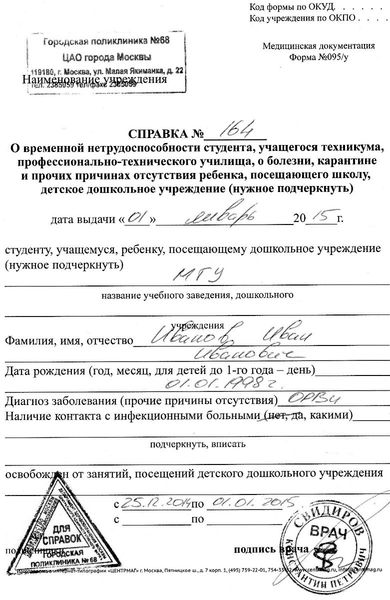 Код формы по ОКУД. . . . . .
Код учреждения по ОКПО . . . .
Городская поликлиника №68
ЦАО города Москвы
119180, г. Москва, ул. Малая Якиманка, д. 22
тел. 2385059 тел/факс 2385059
Наименование учреждения
Медицинская документация
Форма №095/у
СПРАВКА № 164
О временной нетрудоспособности студента, учащегося техникума,
профессионально-технического училища, о болезни, карантине
и прочих причинах отсутствия ребенка, посещающего школу,
детское дошкольное учреждение (нужное подчеркнуть)
дата выдачи «01» январь 2015 г.
студенту, учащемуся, ребенку, посещающему дошкольное учреждение
(нужное подчеркнуть)
МГУ
название учебного заведения, дошкольного
учреждения
Фамилия, имя, отчество Иванов Иван
Иванович
Дата рождения (год, месяц, для детей до 1-го года – день)
01.01.1998г.
Диагноз заболевания (прочие причины отсутствия) ОРВИ
Наличие контакта с инфекционными больными (нет, да, какими)
подчеркнуть, вписать
освобожден от занятий, посещений детского дошкольного учреждения
с 25.12.2014 по 01.01.2015
с по
ДЛЯ
СПРАВОК
ГОРОДСКАЯ
ПОЛИКЛИНИКА № 68
подпись врача
СВИДИРОВ
ВРАЧ
КОНСТАНТИН ПЕТРОВИЧ
«ЦЕНТРМАГ» г. Москва, Пятницкое ш., д. 7 корп. 1, (495) 759-22-01,